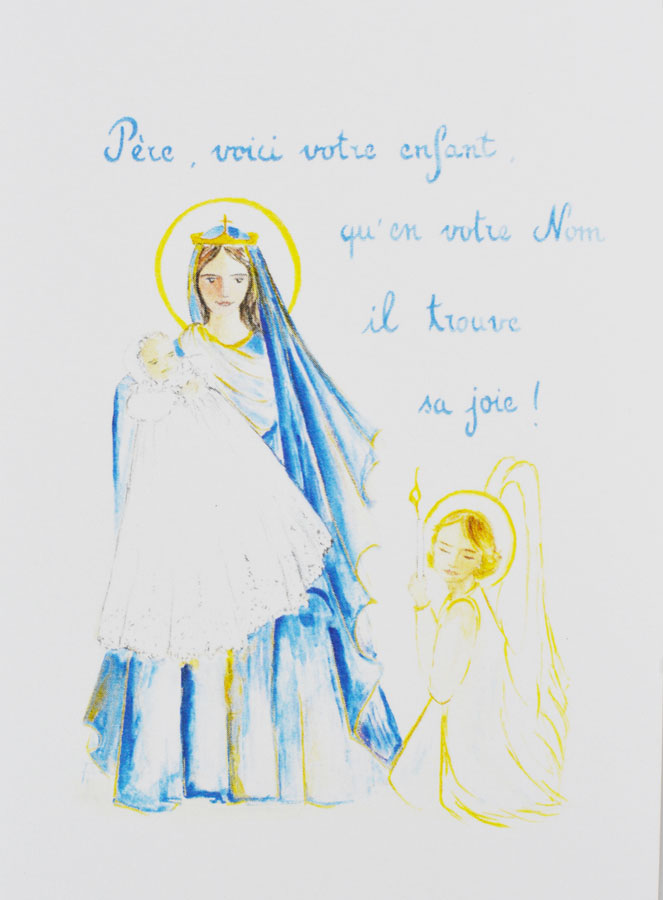 Père, voici votre enfant,
qu'en votre Nom
il trouve
sa joie !